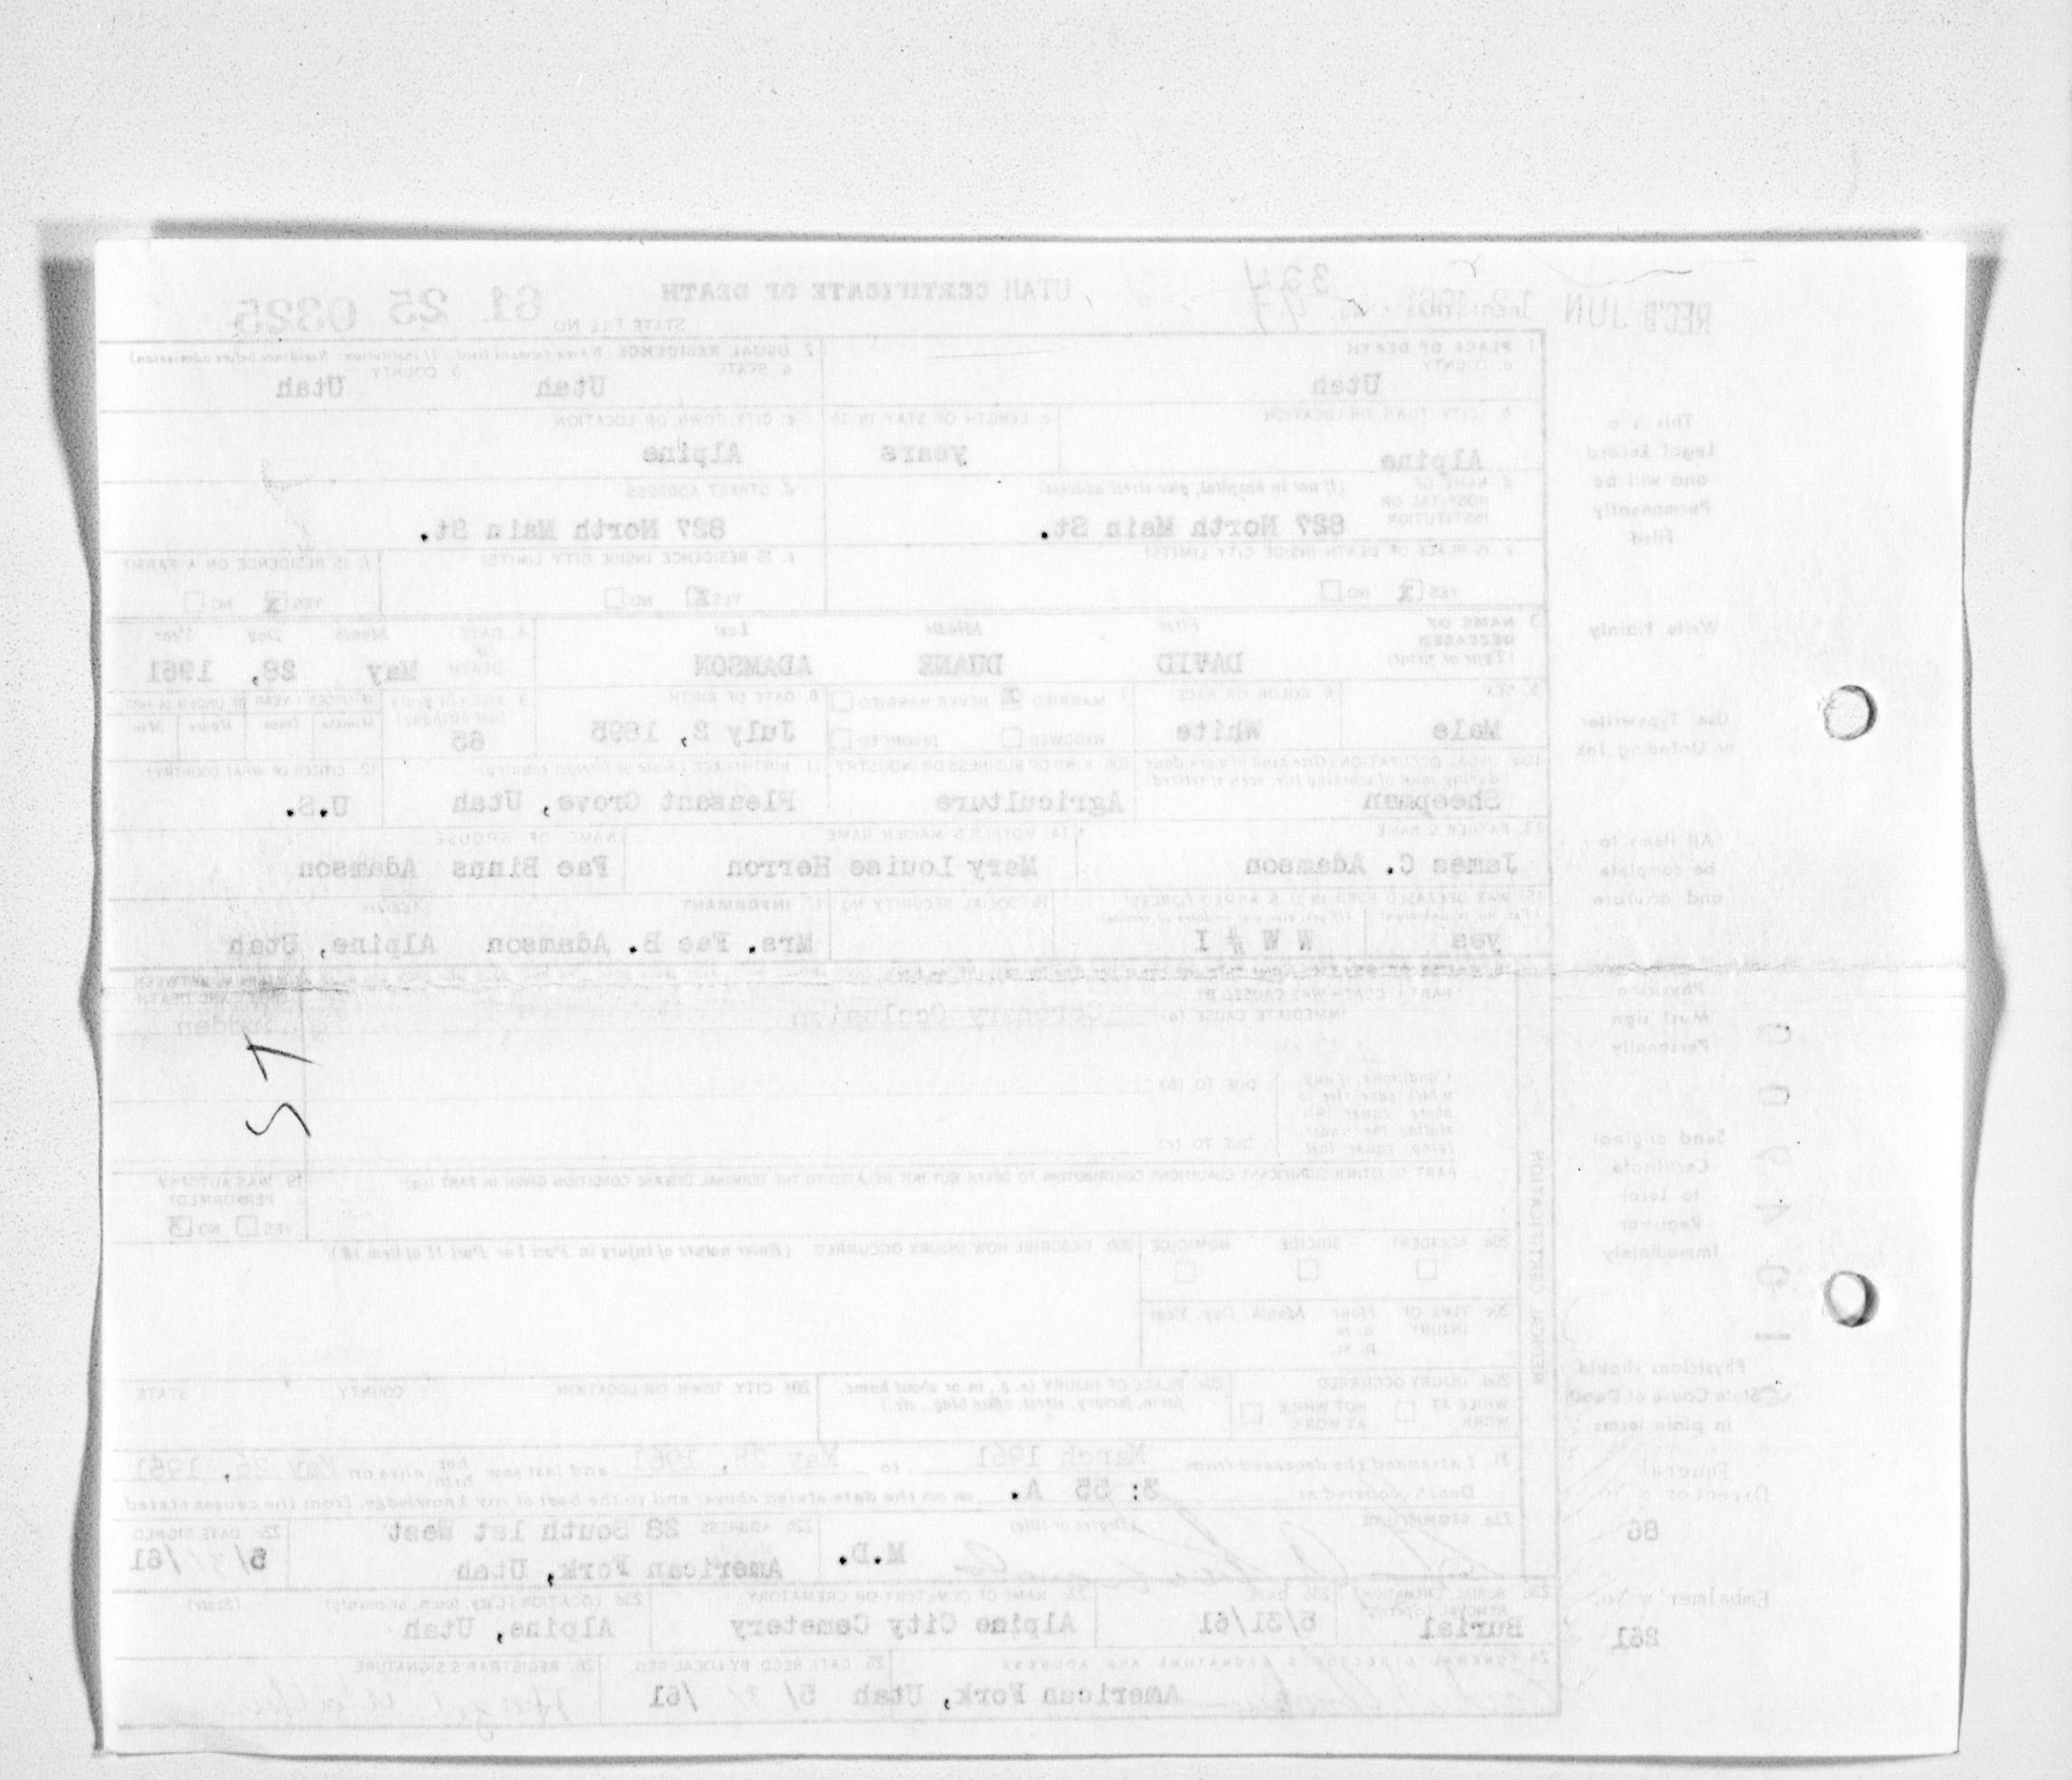 REC'D JUN 12 1961
334
UTAH CERTIFICATE OF DEATH
STATE FILE NO. 61 25 0325
1. PLACE OF DEATH
a. COUNTY
Utah
2. USUAL RESIDENCE (Where deceased lived. If institution: Residence before admission)
a. STATE Utah b. COUNTY Utah
b. CITY, TOWN, OR LOCATION
Alpine
c. LENGTH OF STAY IN 1b
years
c. CITY, TOWN, OR LOCATION
Alpine
d. NAME OF HOSPITAL OR INSTITUTION (If not in hospital, give street address)
827 North Main St.
d. STREET ADDRESS
827 North Main St.
e. IS PLACE OF DEATH INSIDE CITY LIMITS?
YES X NO
e. IS RESIDENCE INSIDE CITY LIMITS?
YES X NO
f. IS RESIDENCE ON A FARM?
YES X NO
3. NAME OF DECEASED (Type or print)
First Middle Last
DAVID DUANE ADAMSON
4. DATE OF DEATH Month Day Year
May 28, 1961
5. SEX
Male
6. COLOR OR RACE
White
7. MARRIED X NEVER MARRIED
WIDOWED DIVORCED
8. DATE OF BIRTH
July 2, 1895
9. AGE (In years last birthday)
65
IF UNDER 1 YEAR IF UNDER 24 HRS.
Months Days Hours Min.
10a. USUAL OCCUPATION (Give kind of work done during most of working life, even if retired)
Sheepman
10b. KIND OF BUSINESS OR INDUSTRY
Agriculture
11. BIRTHPLACE (State or foreign country)
Pleasant Grove, Utah
12. CITIZEN OF WHAT COUNTRY?
U.S.
13. FATHER'S NAME
James C. Adamson
14. MOTHER'S MAIDEN NAME
Mary Louise Herron
NAME OF SPOUSE
Fae Binns Adamson
15. WAS DECEASED EVER IN U. S. ARMED FORCES?
(Yes, no, or unknown) (If yes, give war or dates of service)
yes W W # I
16. SOCIAL SECURITY NO.
17. INFORMANT Address
Mrs. Fae B. Adamson Alpine, Utah
INTERVAL BETWEEN ONSET AND DEATH
PART I. DEATH WAS CAUSED BY:
IMMEDIATE CAUSE (a) Coronary Occlusion
Sudden
Conditions, if any, which gave rise to above cause (a), stating the underlying cause last.
DUE TO (b)
DUE TO (c)
ST
PART II. OTHER SIGNIFICANT CONDITIONS CONTRIBUTING TO DEATH BUT NOT RELATED TO THE TERMINAL DISEASE CONDITION GIVEN IN PART I(a)
19. WAS AUTOPSY PERFORMED?
YES NO X
20a. ACCIDENT SUICIDE HOMICIDE
20b. DESCRIBE HOW INJURY OCCURRED. (Enter nature of injury in Part I or Part II of item 18.)
20c. TIME OF INJURY Hour Month, Day, Year
a. m.
p. m.
20d. INJURY OCCURRED
WHILE AT WORK NOT WHILE AT WORK
20e. PLACE OF INJURY (e. g., in or about home, farm, factory, street, office bldg., etc.)
20f. CITY, TOWN, OR LOCATION COUNTY STATE
MEDICAL CERTIFICATION
21. I attended the deceased from March 1961 to May 28, 1961 and last saw her him alive on May 26, 1961
Death occurred at 3: 55 A. m on the date stated above; and to the best of my knowledge, from the causes stated.
22a. SIGNATURE (Degree or title)
M.D.
22b. ADDRESS 28 South 1st West
American Fork, Utah
22c. DATE SIGNED
5/31/61
23a. BURIAL, CREMATION, REMOVAL (Specify)
Burial
23b. DATE
5/31/61
23c. NAME OF CEMETERY OR CREMATORY
Alpine City Cemetery
23d. LOCATION (City, town, or county) (State)
Alpine, Utah
24. FUNERAL DIRECTOR'S SIGNATURE AND ADDRESS
American Fork, Utah
25. DATE RECD. BY LOCAL REG.
5/31/61
26. REGISTRAR'S SIGNATURE
This is a
Legal Record
and will be
Permanently
Filed
Write Plainly
Use Typewriter
or Unfading Ink
All items to
be complete
and accurate
Physician
Must sign
Personally
Send original
Certificate
to Local
Registrar
Immediately
Physicians should
State Cause of Death
in plain terms
Funeral
Director's No.
86
Embalmer's No.
261